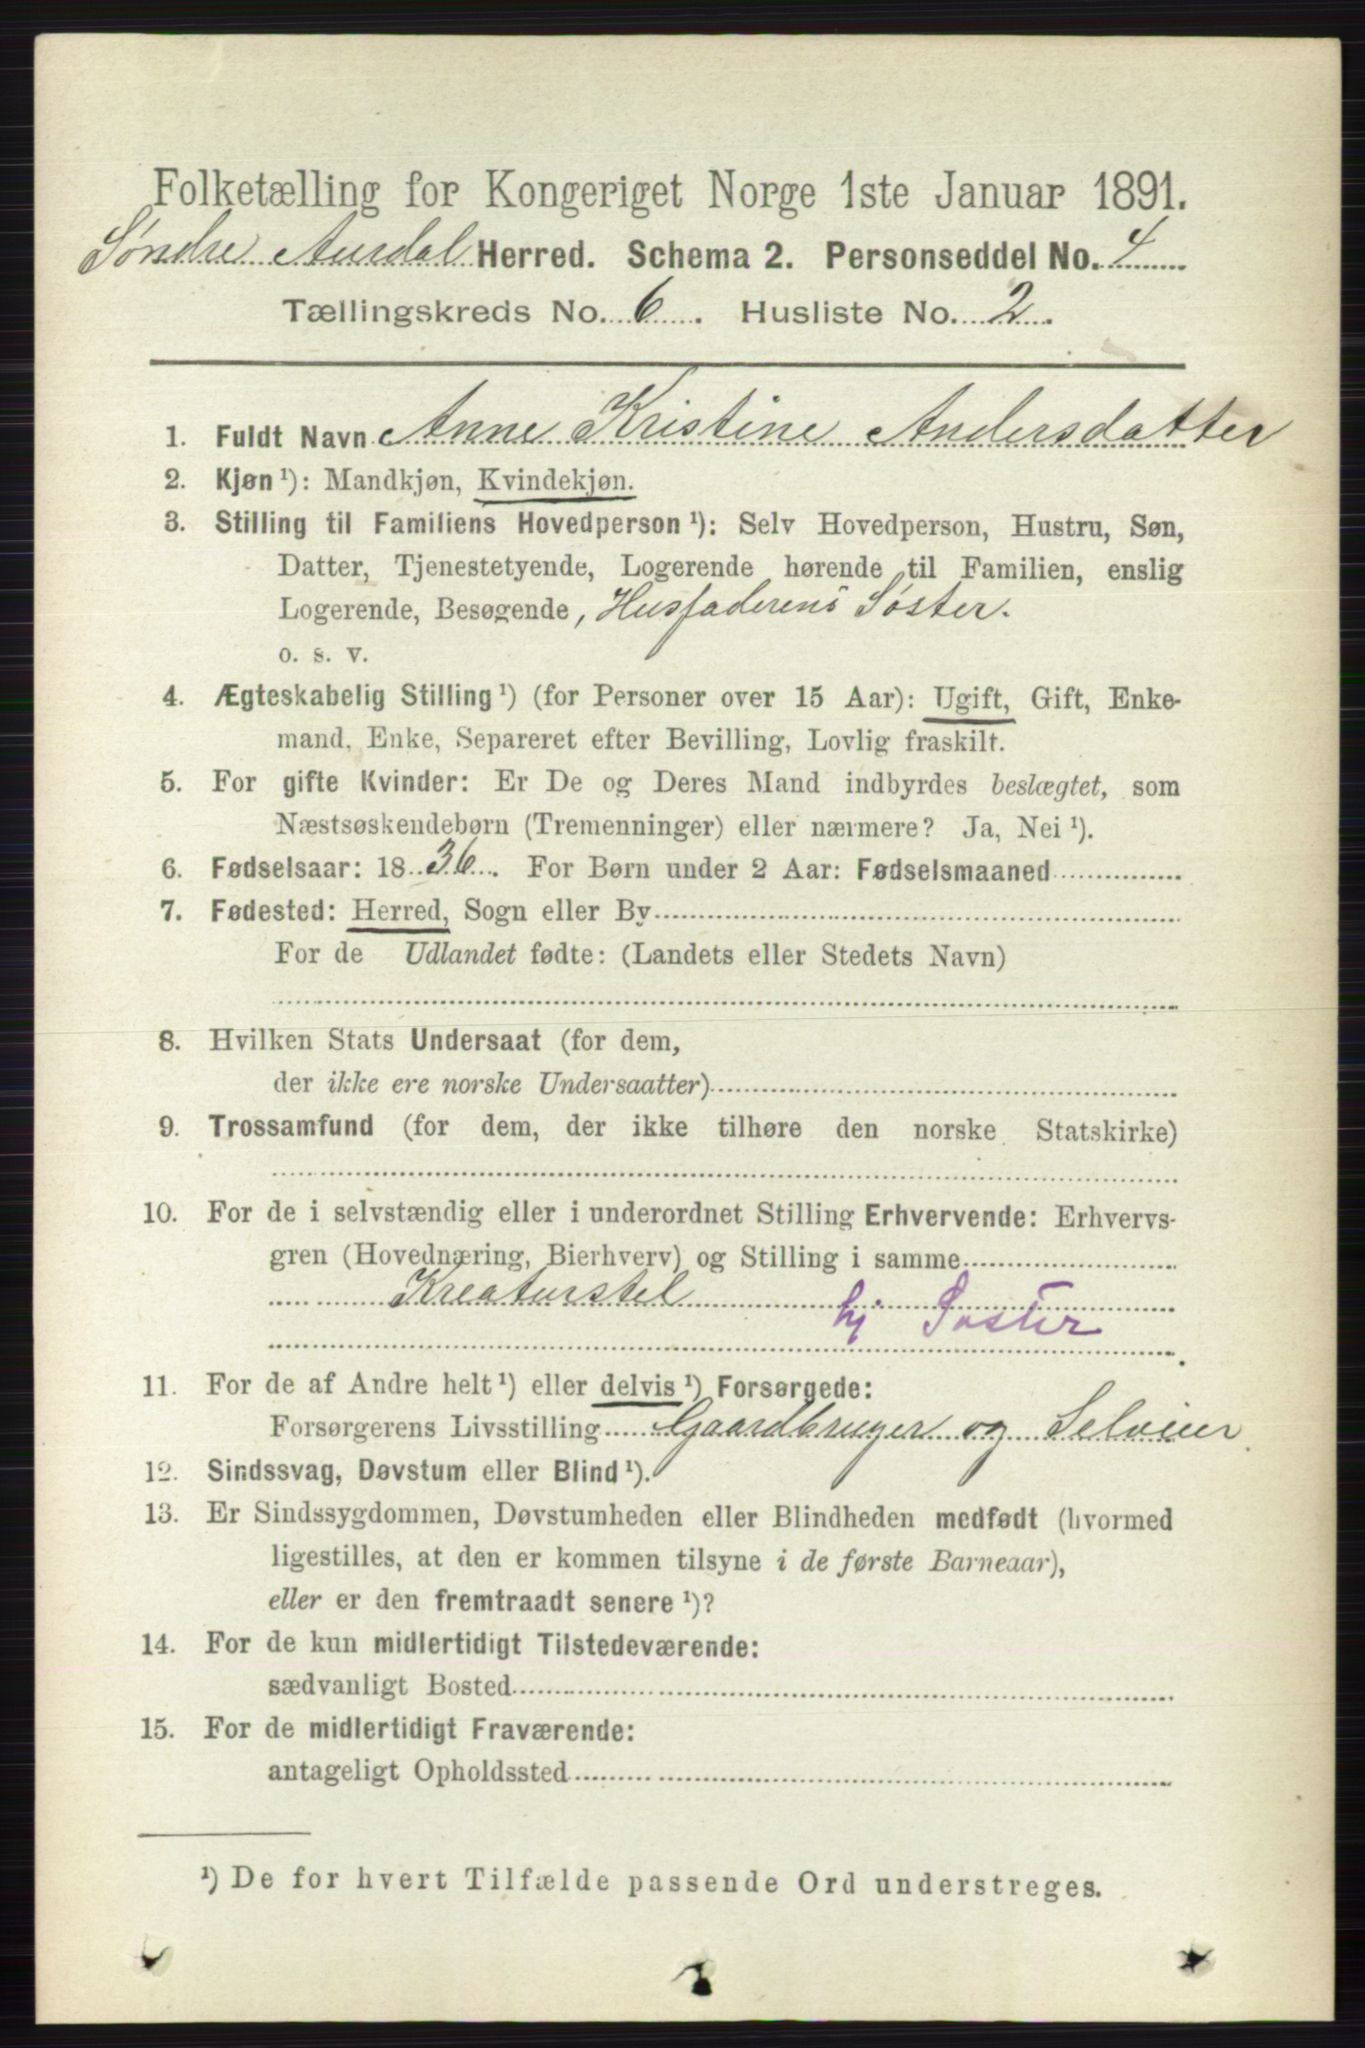 Folketælling for Kongeriget Norge 1ste Januar 1891.
Søndre Aurdal Herred. Schema 2. Personseddel No. 4
Tællingskreds No. 6. Husliste No. 2.
1. Fuldt Navn Anne Kristine Andersdatter
2. Kjøn ¹): Mandkjøn, Kvindekjøn.
3. Stilling til Familiens Hovedperson ¹): Selv Hovedperson, Hustru, Søn,
Datter, Tjenestetyende, Logerende hørende til Familien, enslig
Logerende, Besøgende, Husfaderens Søster.
o. s. v.
4. Ægteskabelig Stilling ¹) (for Personer over 15 Aar): Ugift, Gift, Enke-
mand, Enke, Separeret efter Bevilling, Lovlig fraskilt.
5. For gifte Kvinder: Er De og Deres Mand indbyrdes beslægtet, som
Næstsøskendebørn (Tremenninger) eller nærmere? Ja, Nei ¹).
6. Fødselsaar: 1836. For Børn under 2 Aar: Fødselsmaaned
7. Fødested: Herred, Sogn eller By
For de Udlandet fødte: (Landets eller Stedets Navn)
8. Hvilken Stats Undersaat (for dem,
der ikke ere norske Undersaatter)
9. Trossamfund (for dem, der ikke tilhøre den norske Statskirke)
10. For de i selvstændig eller i underordnet Stilling Erhvervende: Erhvervs-
gren (Hovednæring, Bierhverv) og Stilling i samme
Kreaturstel hj Søster
11. For de af Andre helt ¹) eller delvis ¹) Forsørgede:
Forsørgerens Livsstilling Gaardbruger og Selveier
12. Sindssvag, Døvstum eller Blind ¹).
13. Er Sindssygdommen, Døvstumheden eller Blindheden medfødt (hvormed
ligestilles, at den er kommen tilsyne i de første Barneaar),
eller er den fremtraadt senere ¹)?
14. For de kun midlertidigt Tilstedeværende:
sædvanligt Bosted
15. For de midlertidigt Fraværende:
antageligt Opholdssted
¹) De for hvert Tilfælde passende Ord understreges.